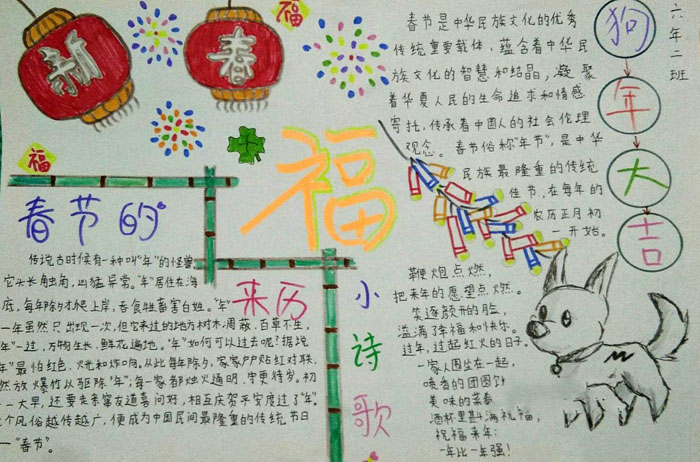 新春
福
福
福
春节是中华民族文化的优秀
传统重要载体，蕴含着中华民
族文化的智慧和结晶，凝聚
着华夏人民的生命追求和情感
寄托，传承着中国人的社会伦理
观念。春节俗称"年节"，是中华
民族最隆重的传统
佳节，在每年的
农历正月初
一开始。
六年二班
狗年大吉
春节的
来历
传说古时候有一种叫"年"的怪兽，
它头长角，凶猛异常。"年"居住在海
底，每年除夕才爬上岸，吞食牲畜害百姓。"年"
一年虽然只出现一次，但它来过的地方树木凋蔽，百草不生，
"年"一过，万物生长，鲜花遍地。"年"如何可以过去呢？据说
"年"最怕红色、火光和炸响。从此每年除夕，家家户户贴红对联、
燃放爆竹以驱除"年"；每一家都烛火通明、守更待岁。初
一大早，还要走亲串友道喜问好，相互庆贺平安度过了"年"。
个风俗越传越广，便成为中国民间最隆重的传统节日
"春节"。
小诗歌
鞭炮点燃，
把来年的愿望点燃。
笑逐颜开的脸，
溢满了幸福和快乐。
过年，过起红火的日子。
一家人围坐在一起，
唤香的团圆饣
美味的菜肴
酒杯里斟满祝福，
祝福来年：
一年比一年强！